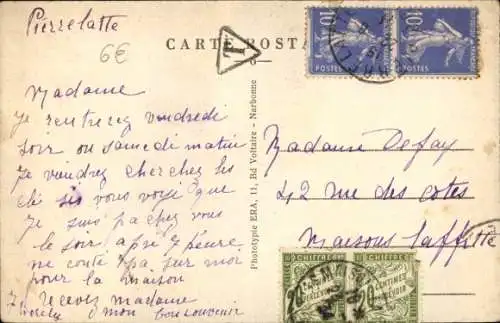 Pierrelatte
6€
CARTE POSTA
T
10c
10c
POSTES
POSTES
Madame
Je rentrerez vendredi
soir ou samedi matin
Je vendrez cherchez les
clé si vous voyé que
Je suis pa chez vous
le soir apré 7 heure
ne conte pa sur moi
pour la maison
recevez madame
mon bon souvenir
Phototypie ERA, 11, Bd Voltaire - Narbonne
Madame Defay
42 rue des cotes
Maisons Laffitte
CHIFFRE
CHIFFRE